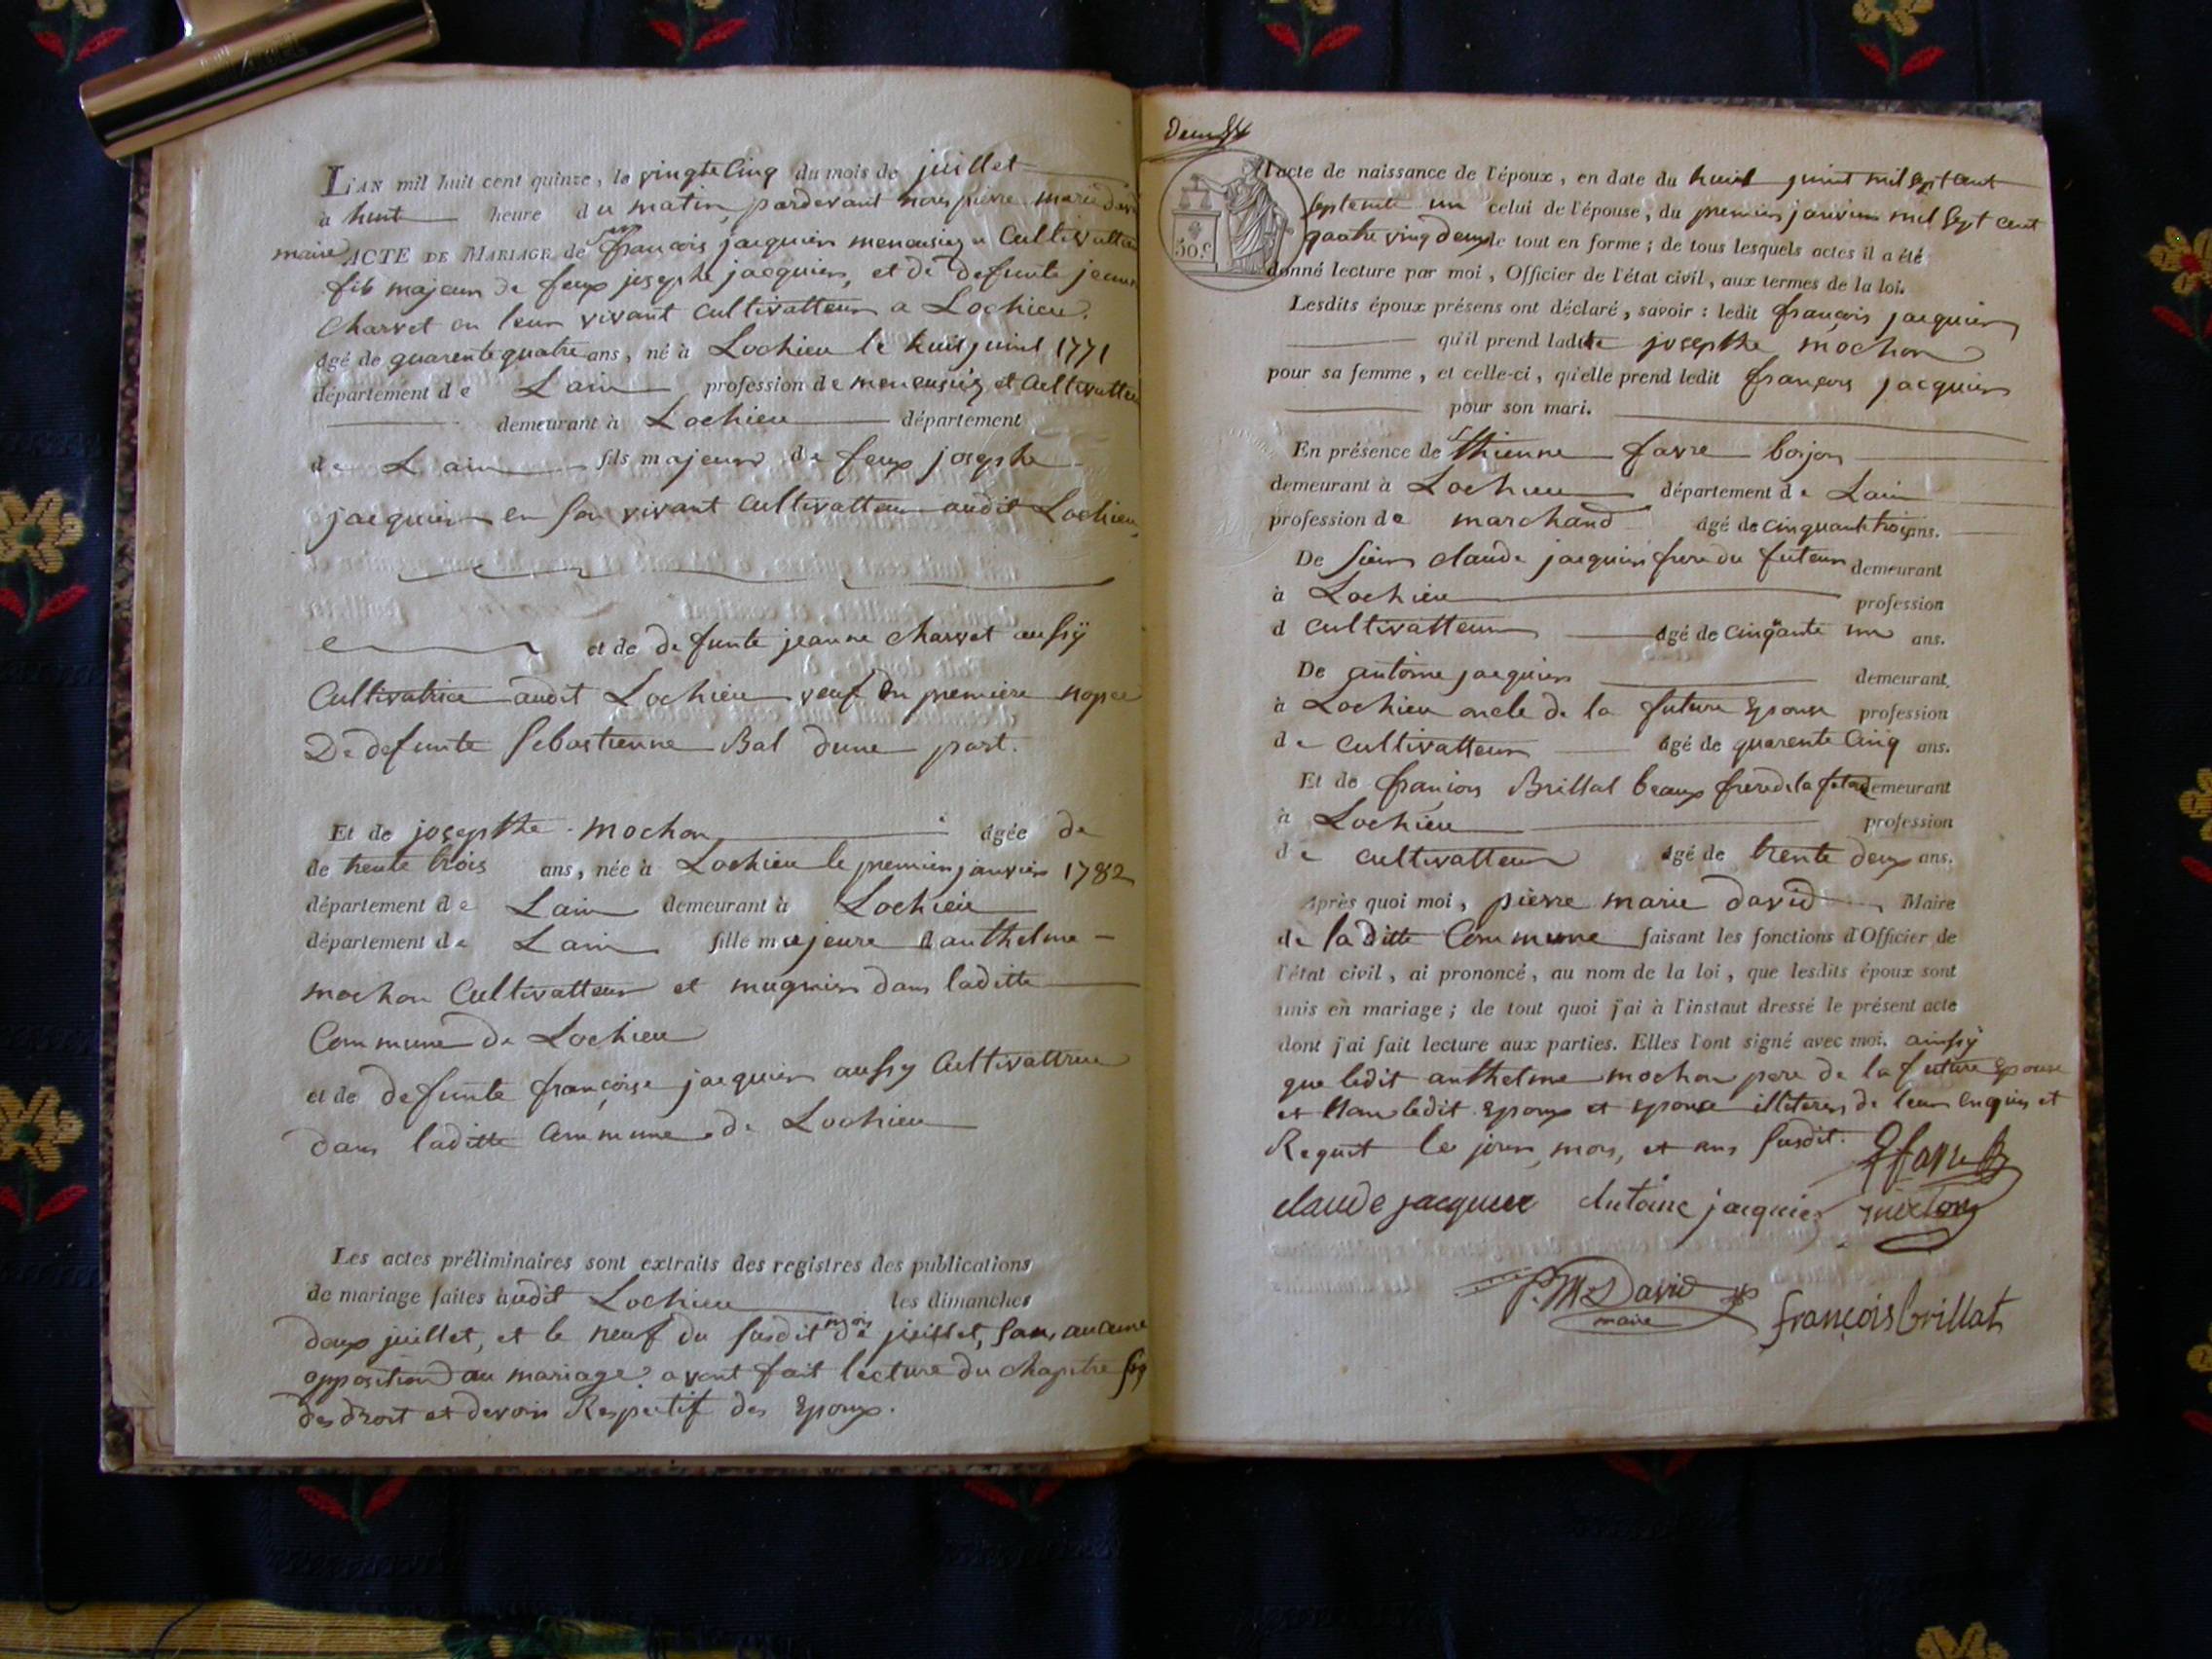 L'AN mil huit cent quinze, le vingte Cinq du mois de juillet
a huit heure du matin pardevant nous pierre marie david
maire ACTE DE MARIAGE de françois jacquier meneusiez et Cultivatteur
fils majeur de feux josephe jacquier, et de defunte jeanne
Charvet en leur vivant Cultivatteur a Lochieu.
âgé de quarente quatre ans, né à Lochieu le huit juint 1771
département de Lain profession de meneusiez et Cultivatteur
demeurant à Lochieu département
de Lain fils majeur de feux josephe
jacquier en son vivant Cultivatteur audit Lochieu
et de defunte jeanne Charvet aussÿ
Cultivatrice audit Lochieu veuf en premiere nopce
De defunte Sebastienne Bal dune part.
Et de josepthe mochon âgée de
de trente trois ans, née à Lochieu le premier janvier 1782
département de Lain demeurant à Lochieu
département de Lain fille majeure danthelme
mochon Cultivatteur et mugnier dans laditte
Commune de Lochieu
et de defunte françoise jacquier aussy Cultivattrice
dans laditte Commune de Lochieu
Les actes préliminaires sont extraits des registres des publications
de mariage faites audit Lochieu les dimanches
deux juillet, et le neuf du susdit mois de juillet, sans aucune
opposition au mariage avant fait lecture du chapitre six
des droit et devoir Respectif des Epoux.
50 c
l'acte de naissance de l'époux, en date du huit juint mil sept cent
septente un celui de l'épouse, du premier janvier mil sept cent
quatre ving deux le tout en forme ; de tous lesquels actes il a été
donné lecture par moi, Officier de l'état civil, aux termes de la loi.
Lesdits époux présens ont déclaré, savoir : ledit françois jacquier
qu'il prend ladite josepthe mochon
pour sa femme, et celle-ci, qu'elle prend ledit françois jacquier
pour son mari.
En présence de Sr Ethienne favre borjon
demeurant à Lochieu département de Lain
profession de marchand âgé de cinquante trois ans.
De Sieur claude jacquier frere du futeur demeurant
à Lochieu profession
d cultivatteur âgé de cinquante un ans.
De antoine jacquier demeurant
à Lochieu oncle de la future Epouse profession
de cultivatteur âgé de quarente Cinq ans.
Et de françois Brillat beaux frere de la future demeurant
à Lochieu profession
de cultivatteur âgé de trente deux ans.
Après quoi moi, pierre marie david Maire
de la ditte Commune faisant les fonctions d'Officier de
l'état civil, ai prononcé, au nom de la loi, que lesdits époux sont
unis en mariage ; de tout quoi j'ai à l'instant dressé le présent acte
dont j'ai fait lecture aux parties. Elles l'ont signé avec moi. ainssÿ
que ledit anthelme mochon pere de la future Epouse
et non ledit Epoux et Epouse illiterer de leur enquis et
Requit le jour, mois, et ans susdit.
claude jacquier Antoine jacquier
P. M. David françois brillat
maire